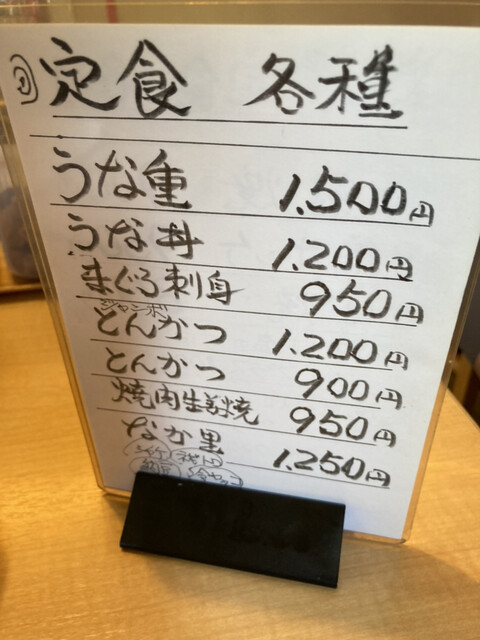 定食 各種
うな重 1,500円
うな丼 1,200円
まぐろ刺身 950円
ジャンボ
とんかつ 1,200円
とんかつ 900円
焼肉生姜焼 950円
なか里 1,250円